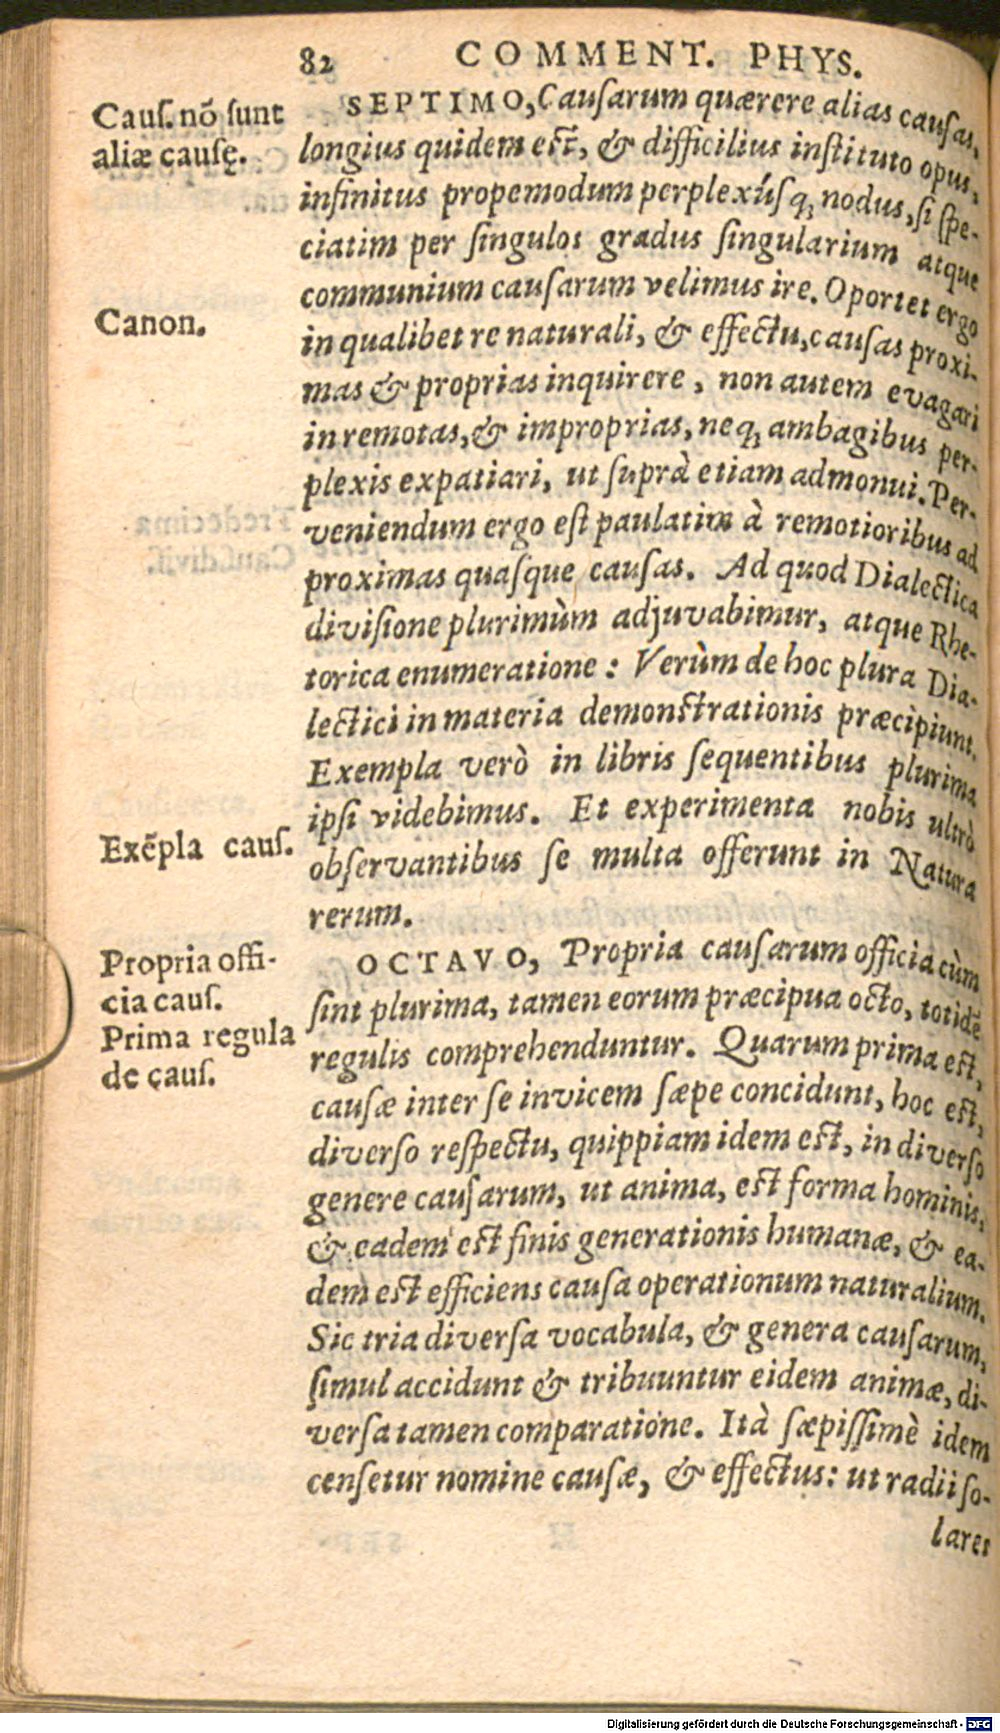 82 COMMENT. PHYS.
Cauſ. nõ ſunt
aliæ cauſę.
SEPTIMO, Cauſarum quærere alias cauſas,
longius quidem eſt, & difficilius inſtituto opus,
infinitus propemodum perplexúſq; nodus, ſi ſpe-
ciatim per ſingulos gradus ſingularium atque
communium cauſarum velimus ire. Oportet ergo
Canon.
in qualibet re naturali, & effectu, cauſas proxi-
mas & proprias inquirere, non autem evagari
in remotas, & improprias, neq; ambagibus per-
plexis expatiari, ut ſuprà etiam admonui. Per-
veniendum ergo eſt paulatim à remotioribus ad
proximas quaſque cauſas. Ad quod Dialectica
diviſione plurimùm adjuvabimur, atque Rhe-
torica enumeratione: Verùm de hoc plura Dia-
lectici in materia demonſtrationis præcipiunt.
Exempla verò in libris ſequentibus plurima
ipſi videbimus. Et experimenta nobis ultrò
Exẽpla cauſ.
obſervantibus ſe multa offerunt in Natura
rerum.
Propria offi-
cia cauſ.
Prima regula
de cauſ.
OCTAVO, Propria cauſarum officia cùm
ſint plurima, tamen eorum præcipua octo, totidẽ
regulis comprehenduntur. Quarum prima eſt,
cauſæ inter ſe invicem ſæpe concidunt, hoc eſt,
diverſo reſpectu, quippiam idem eſt, in diverſo
genere cauſarum, ut anima, eſt forma hominis,
& eadem eſt finis generationis humanæ, & ea-
dem eſt efficiens cauſa operationum naturalium.
Sic tria diverſa vocabula, & genera cauſarum,
ſimul accidunt & tribuuntur eidem animæ, di-
verſa tamen comparatione. Ità ſæpiſſimè idem
cenſetur nomine cauſæ, & effectus: ut radii ſo-
lares
Digitalisierung gefördert durch die Deutsche Forschungsgemeinschaft - DFG